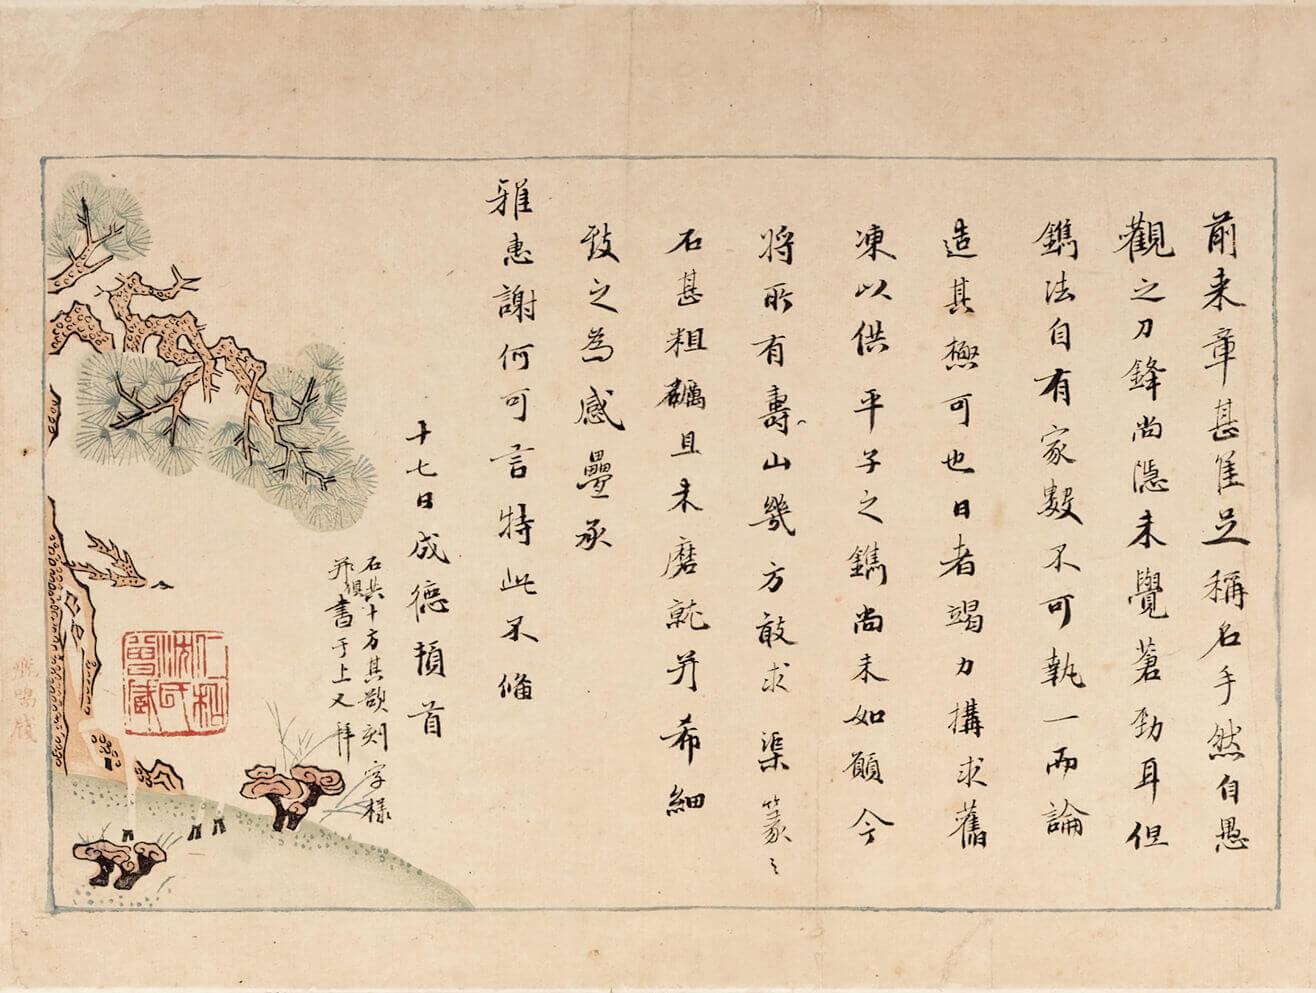 前来章甚佳足稱名手然自愚
觀之刀鋒尚隱未覺蒼勁耳但
鐫法自有家數不可執一而論
造其極可也日者竭力搆求舊
凍以供平子之鐫尚未如願今
將所有壽山幾方敢求渠篆之
石甚粗礪且未磨就并希細
致之為感疊承
雅惠謝何可言特此不備
十七日成德頓首
石共十方其欲刻字樣
并俱書于上又拜
仁和
沈氏
曾藏
飛鴻牋